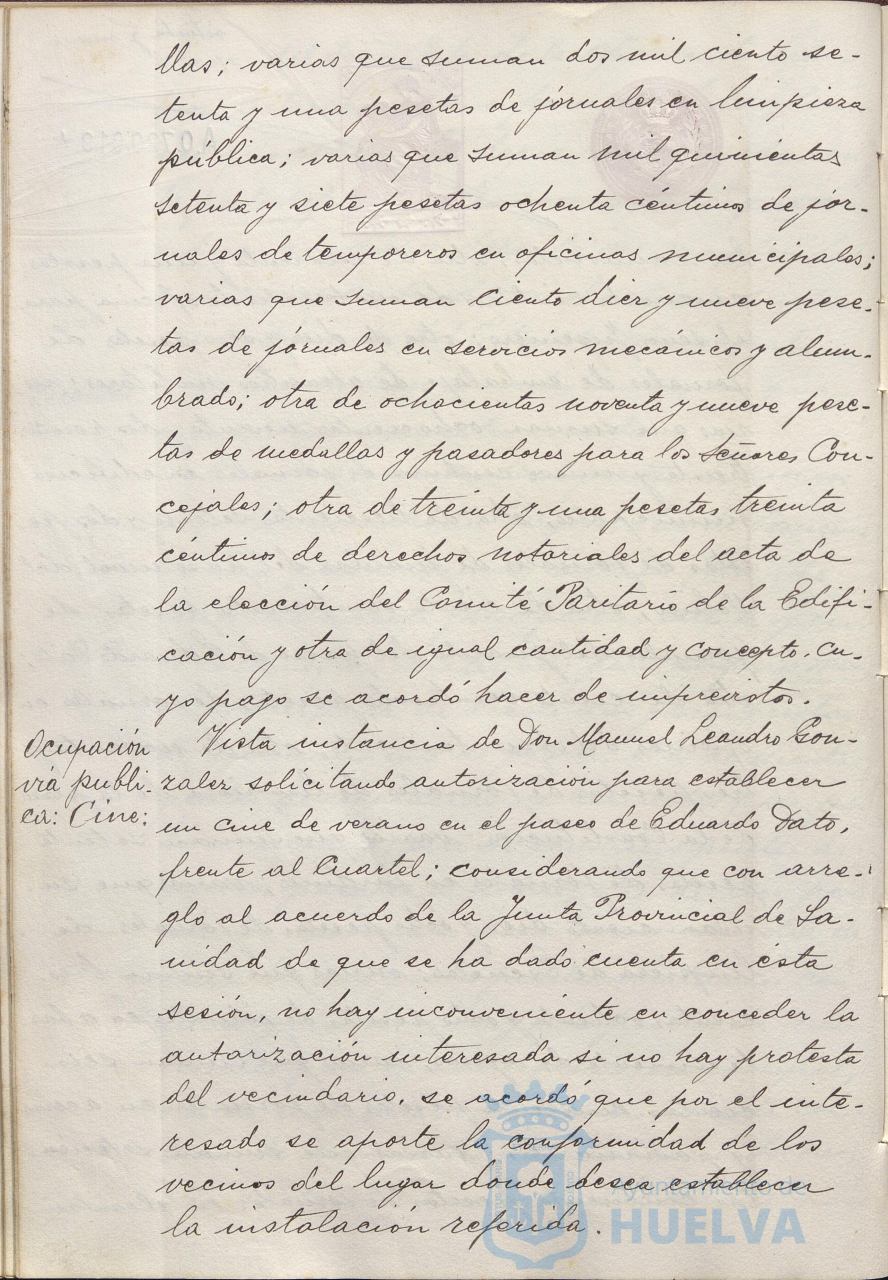 llas; varias que suman dos mil ciento se-
tenta y una pesetas de jornales en limpieza
pública; varias que suman mil quinientas
setenta y siete pesetas ochenta céntimos de jor-
nales de temporeros en oficinas municipales;
varias que suman ciento diez y nueve pese-
tas de jornales en servicios mecánicos y alum-
brado; otra de ochocientas noventa y nueve pese-
tas de medallas y pasadores para los Señores Con-
cejales; otra de treinta y una pesetas treinta
céntimos de derechos notariales del acta de
la elección del Comité Paritario de la Edifi-
cación y otra de igual cantidad y concepto. cu-
yo pago se acordó hacer de imprevistos.
Ocupación
vía públi-
ca: Cine:
Vista instancia de Don Manuel Leandro Gon-
zalez solicitando autorización para establecer
un cine de verano en el paseo de Eduardo Dato,
frente al Cuartel; considerando que con arre-
glo al acuerdo de la Junta Provincial de Sa-
nidad de que se ha dado cuenta en ésta
sesión, no hay inconveniente en conceder la
autorización interesada si no hay protesta
del vecindario, se acordó que por el inte-
resado se aporte la conformidad de los
vecinos del lugar donde desea establecer
la instalación referida.
Ayuntamiento de
HUELVA